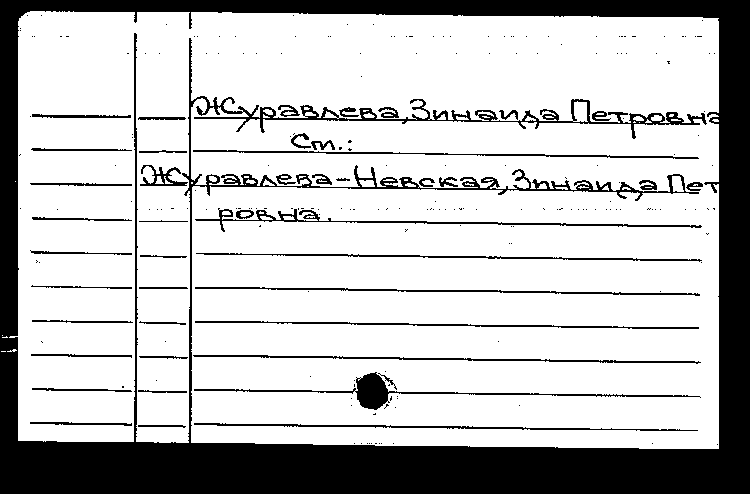 Журавлева, Зинаида Петровна
Cm.:
Журавлева-Невская, Зинаида Пет
ровна.